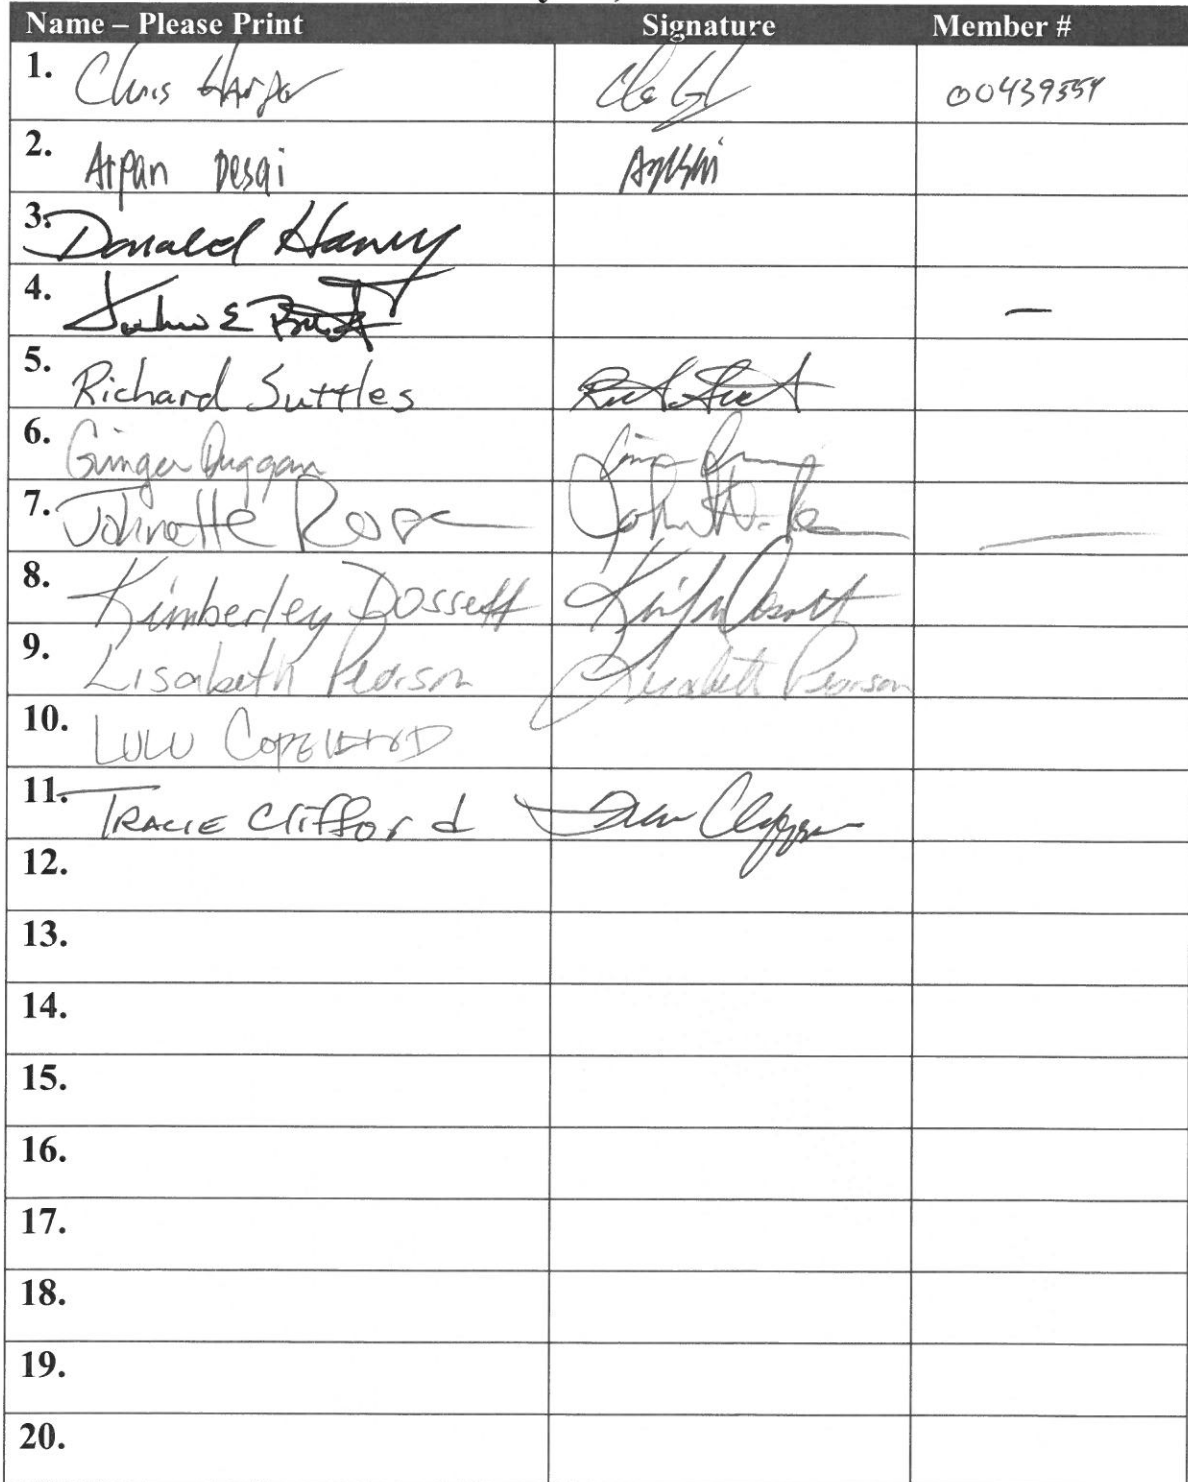 Name – Please Print Signature Member #
1. Chris Harper 00439354
2. Arpan Desai
3. Donald
4. E
5. Richard Suttles
6. Ginger Duggan
7. Johnette
8. Kimberley Dossett
9. Lisabeth Pearson Lisabeth Pearson
10. LULU COPELAND
11. TRACIE Clifford
12.
13.
14.
15.
16.
17.
18.
19.
20.